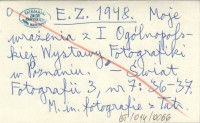 E.Z. 1948. Moje
wrażenia z I Ogólnopols-
kiej Wystawy Fotografiki
w Poznaniu. – Świat
Fotografii 3, nr 7: 36-37.
M.in. fotografie z Tatr.